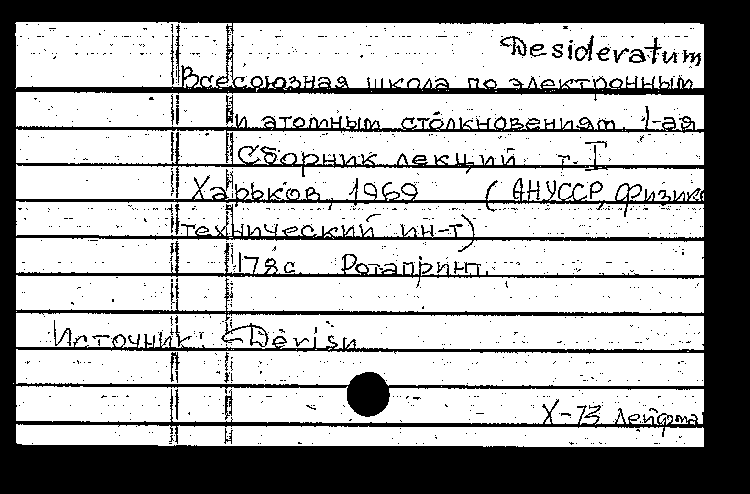 Desideratum
Всесоюзная школа по электронным
и атомным столкновениям, 1-ая
Сборник лекций т. I
Харьков, 1969 (АНУССР, физико
технический ин-т)
178 с. Ротапринт.
Источник:
X-73